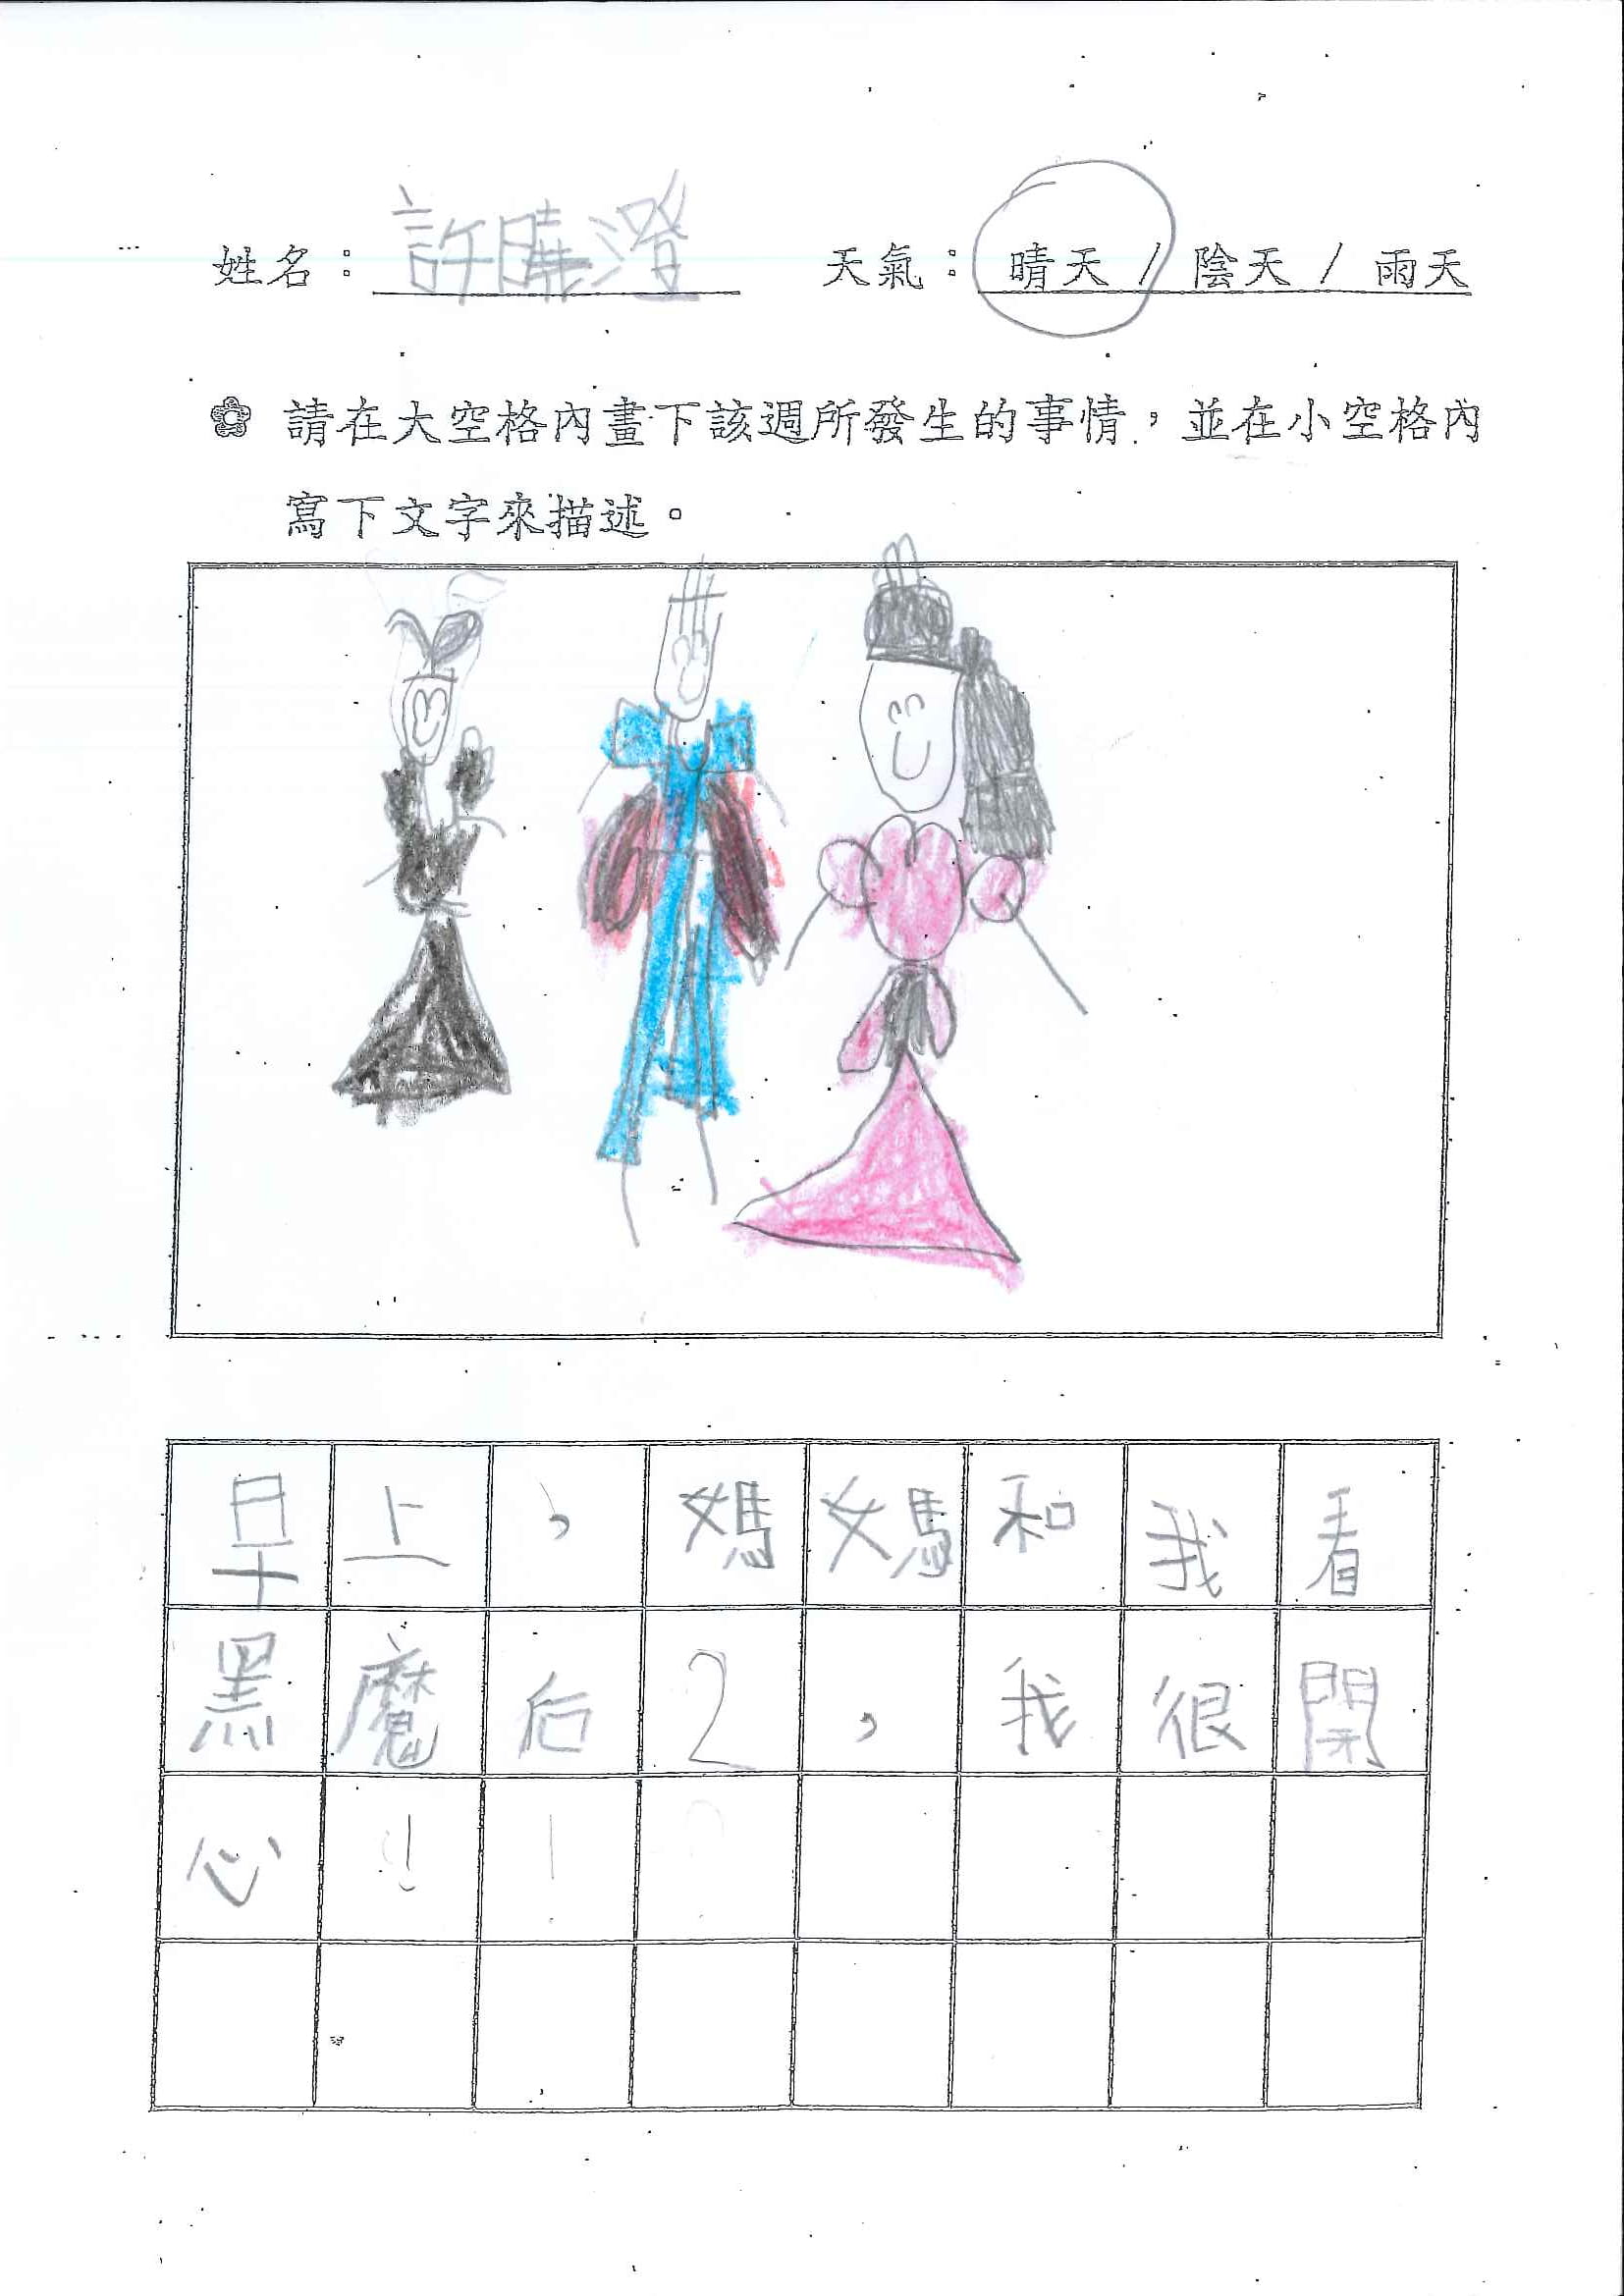 姓名：許曉澄 天氣：晴天 / 陰天 / 雨天
請在大空格內畫下該週所發生的事情，並在小空格內
寫下文字來描述。
早上，媽媽和我看
黑魔后2，我很開
心！！